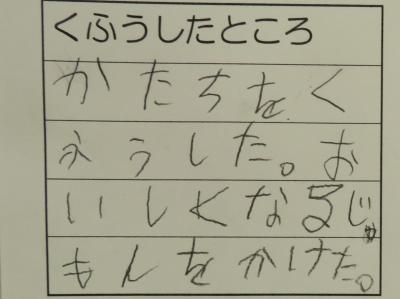 くふうしたところ
かたちをく
ふうした。お
いしくなるじゅ
もんをかけた。